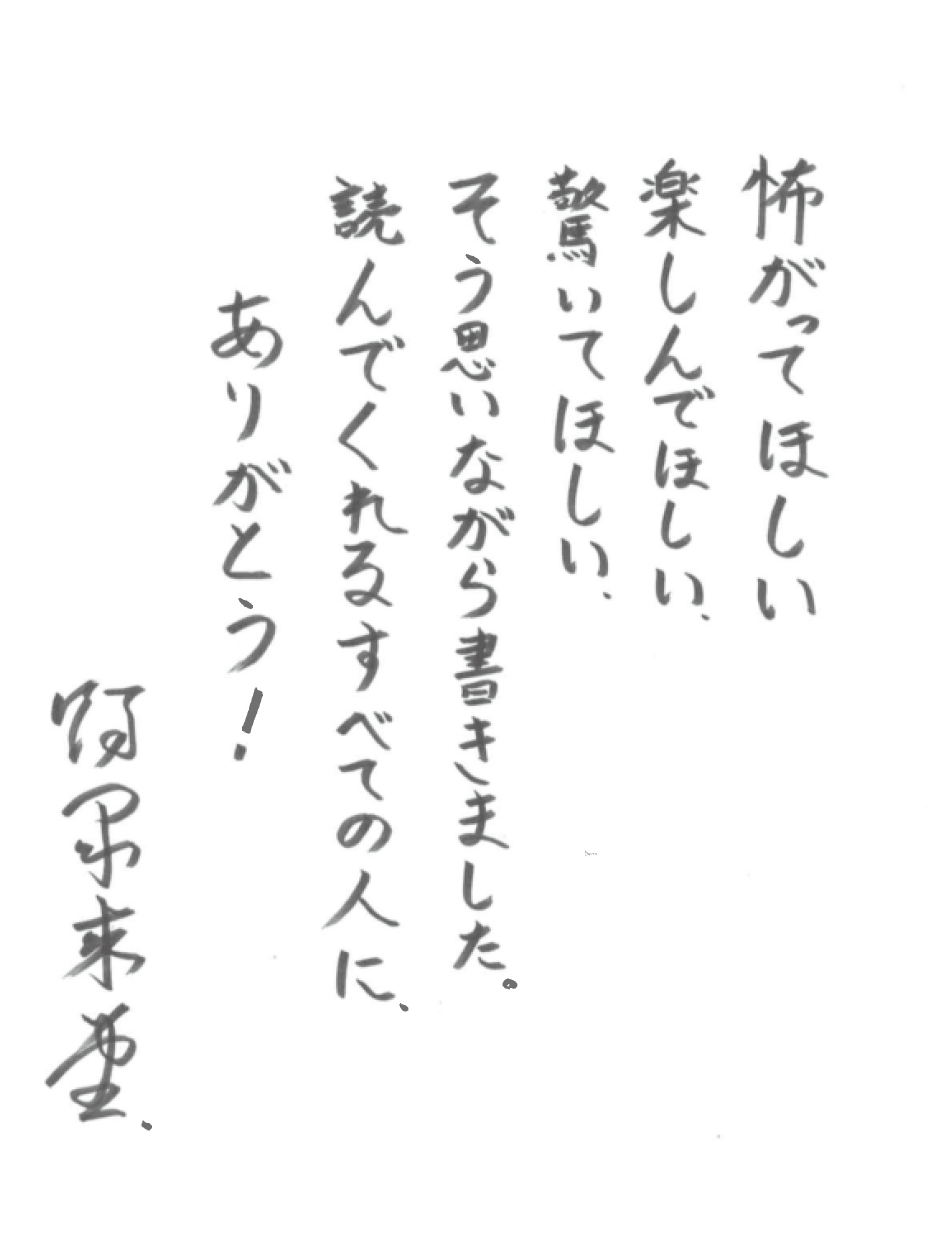 怖がってほしい
楽しんでほしい、
驚いてほしい、
そう思いながら書きました。
読んでくれるすべての人に、
ありがとう！
阿泉来堂、